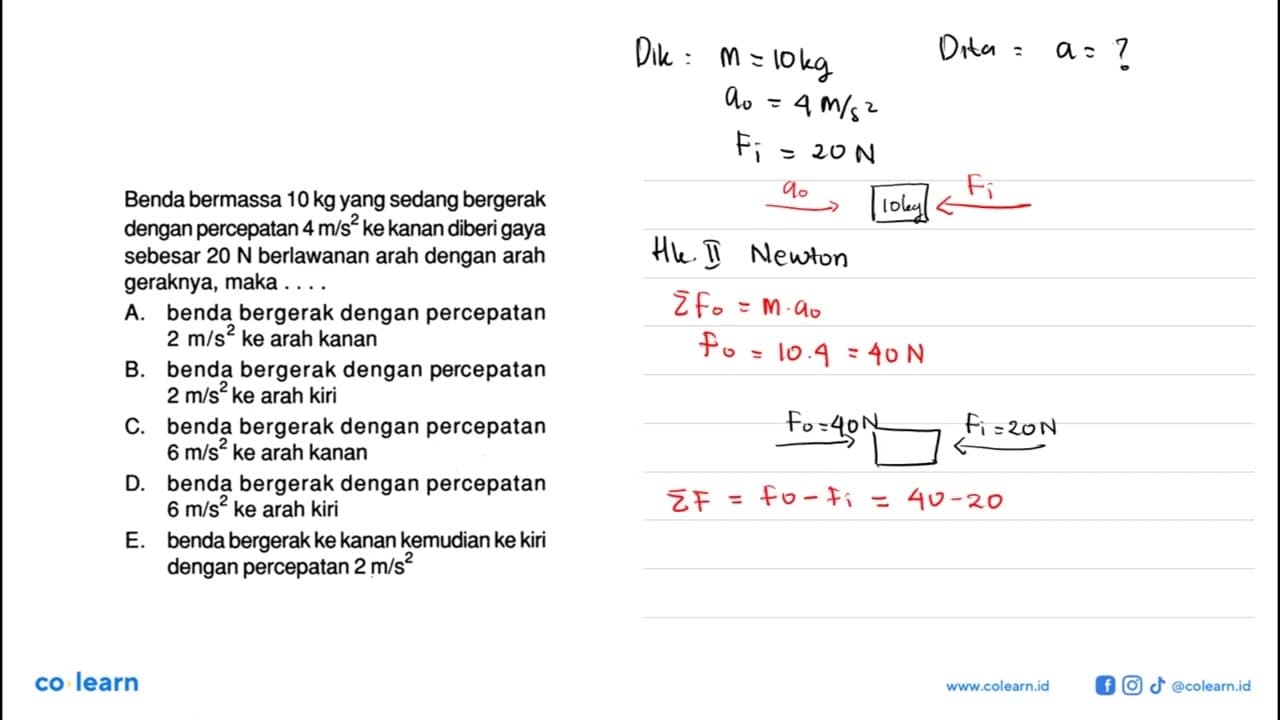 Benda bermassa 10 kg yang sedang bergerak
dengan percepatan 4 m/s² ke kanan diberi gaya
sebesar 20 N berlawanan arah dengan arah
geraknya, maka . . . .
A. benda bergerak dengan percepatan
2 m/s² ke arah kanan
B. benda bergerak dengan percepatan
2 m/s² ke arah kiri
C. benda bergerak dengan percepatan
6 m/s² ke arah kanan
D. benda bergerak dengan percepatan
6 m/s² ke arah kiri
E. benda bergerak ke kanan kemudian ke kiri
dengan percepatan 2 m/s²
Dik : m = 10 kg
a₀ = 4 m/s²
F₁ = 20 N
Dita = a = ?
a₀ 10kg F₁
Hk. II Newton
ΣF₀ = m.a₀
F₀ = 10.4 = 40 N
F₀ = 40N F₁ = 20N
ΣF = F₀ - F₁ = 40 - 20
co learn
www.colearn.id
@colearn.id